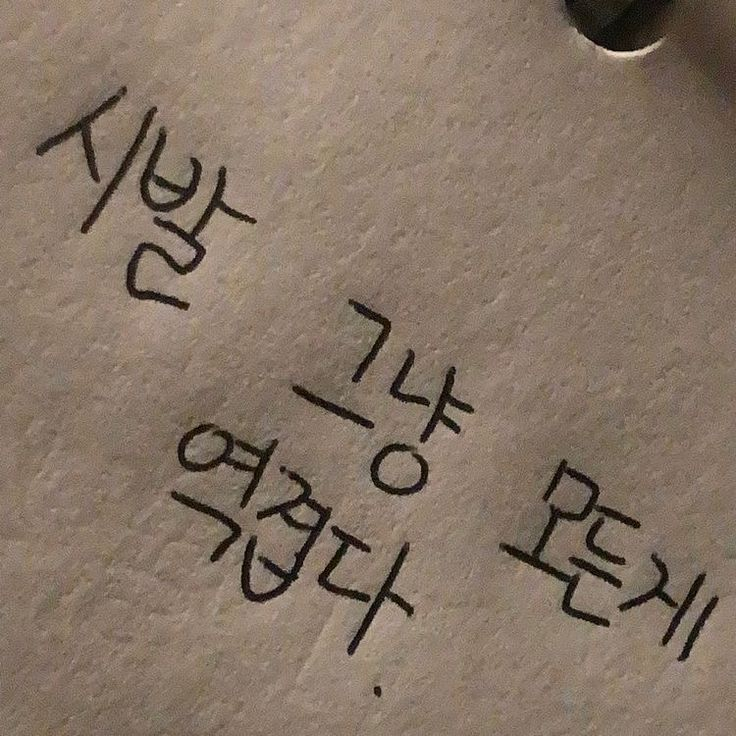 시발 그냥 모든게
역겹다.